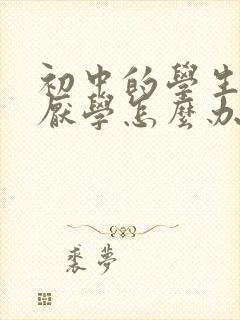 初中的學生
厭學怎麼办
裘夢